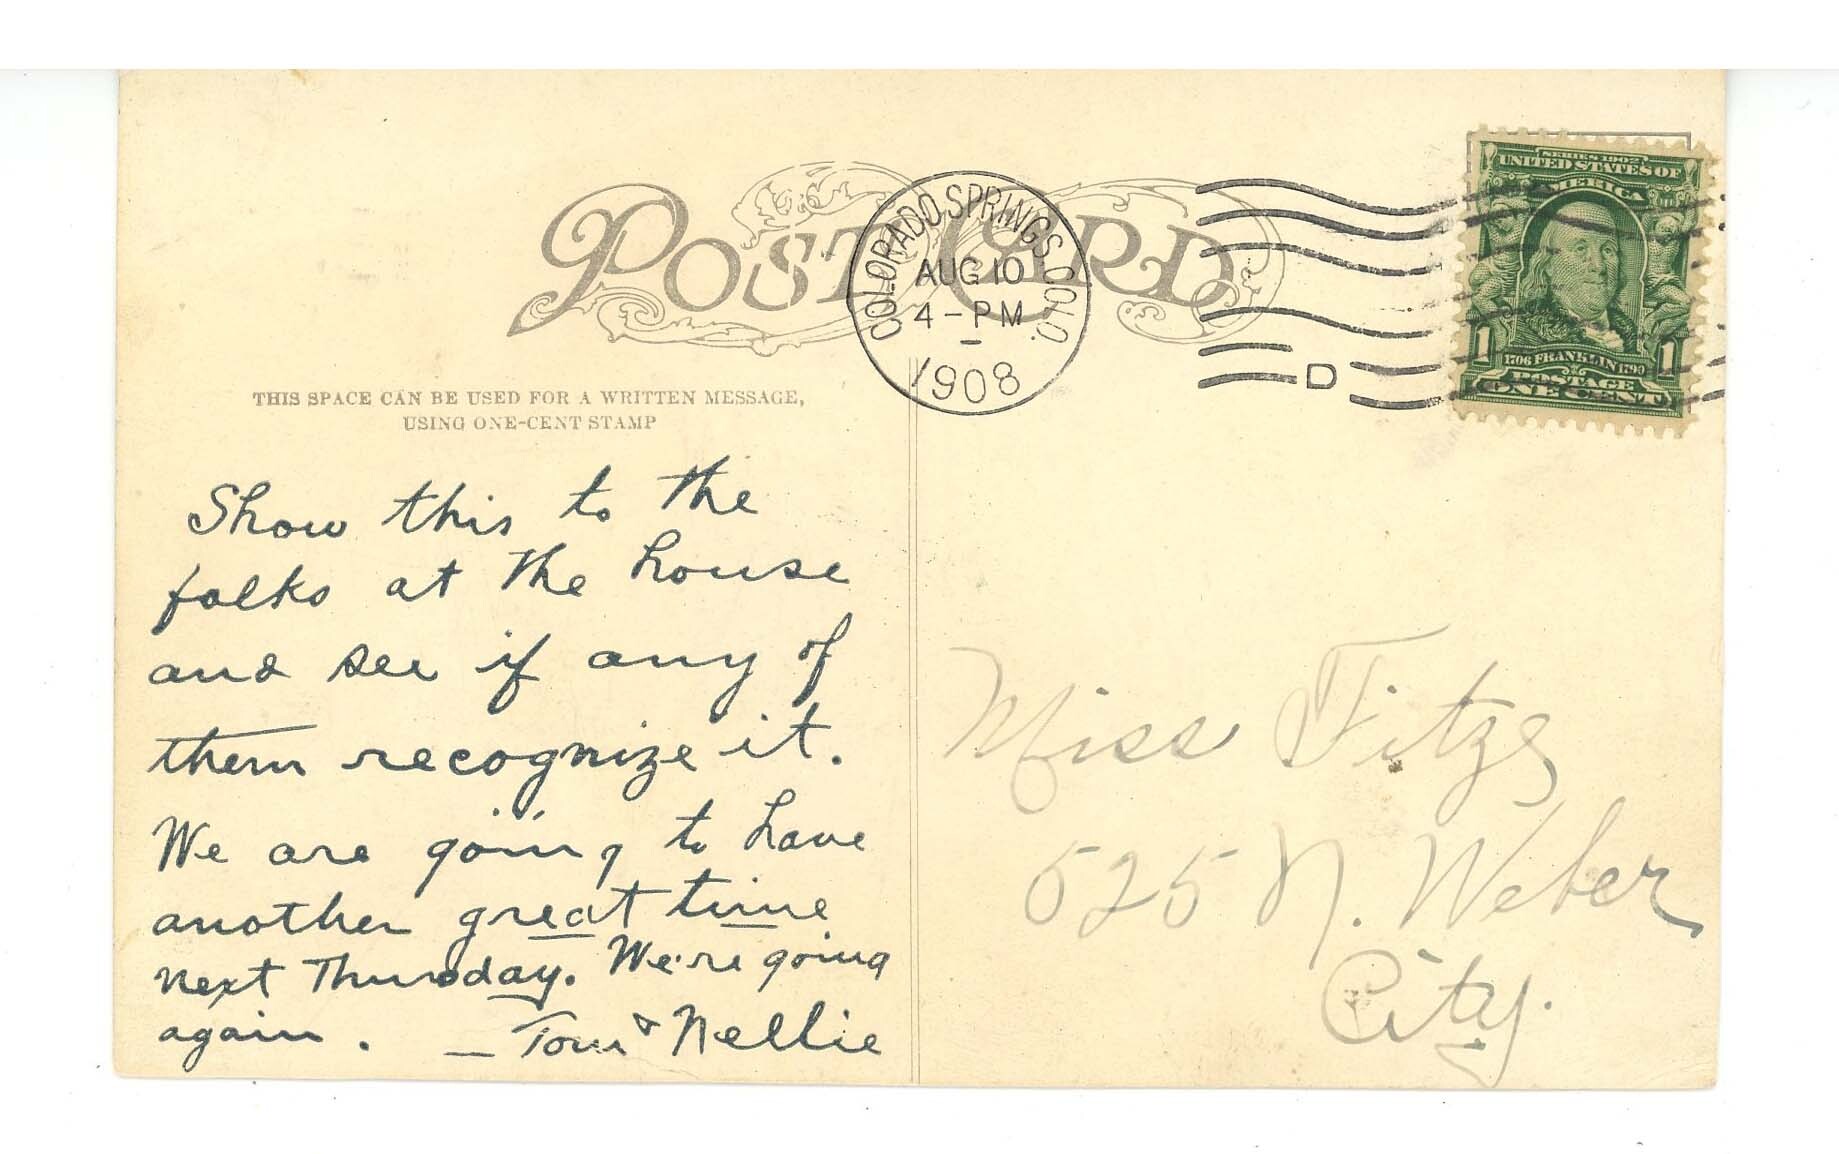 POST CARD
COLORADO SPRINGS. COLO.
AUG 10
4-PM
1908
D
SERIES 1902
UNITED STATES OF
AMERICA
1706 FRANKLIN 1790
1 1
POSTAGE
ONE CENT
THIS SPACE CAN BE USED FOR A WRITTEN MESSAGE,
USING ONE-CENT STAMP
Show this to the
folks at the house
and see if any of
them recognize it.
We are going to have
another great time
next Thursday. We're going
again. — Tom & Nellie
Miss Fitzs
525 N. Weber
City.